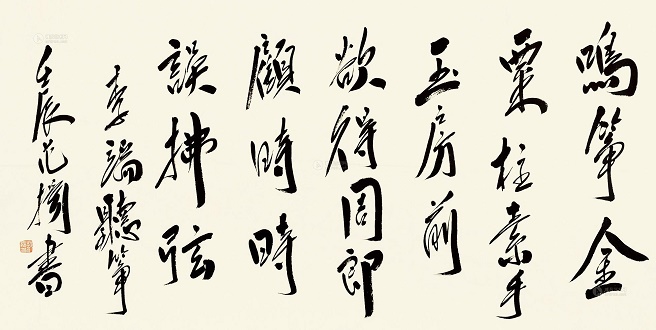 鳴箏金
粟柱素手
玉房前
欲得周郎
顧時時
誤拂弦
李端聽箏
壬辰范揚書